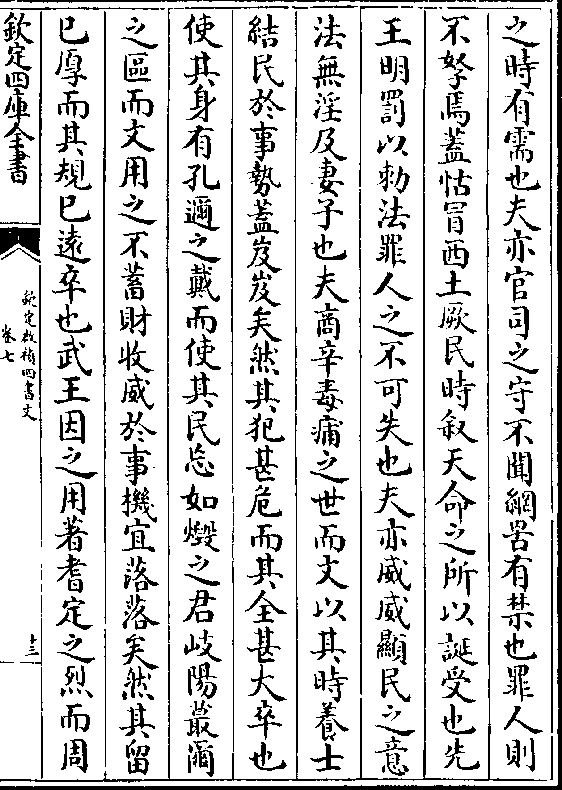 之時有需也夫亦官司之守不聞網罟有禁也罪人則
不孥焉蓋怙冒西土厥民時叙天命之所以誕受也先
王明罰以勅法罪人之不可失也夫亦威威顯民之意
法無淫及妻子也夫商辛毒痡之世而文以其時養士
結民於事勢蓋岌岌矣然其犯甚危而其全甚大卒也
使其身有孔邇之戴而使其民忘如燬之君岐陽蕞爾
之區而文用之不蓄財收威於事機宜落落矣然其留
已厚而其規已遠卒也武王因之用著耆定之烈而周
欽定四庫全書
欽定啟禎四書文
卷七
十三